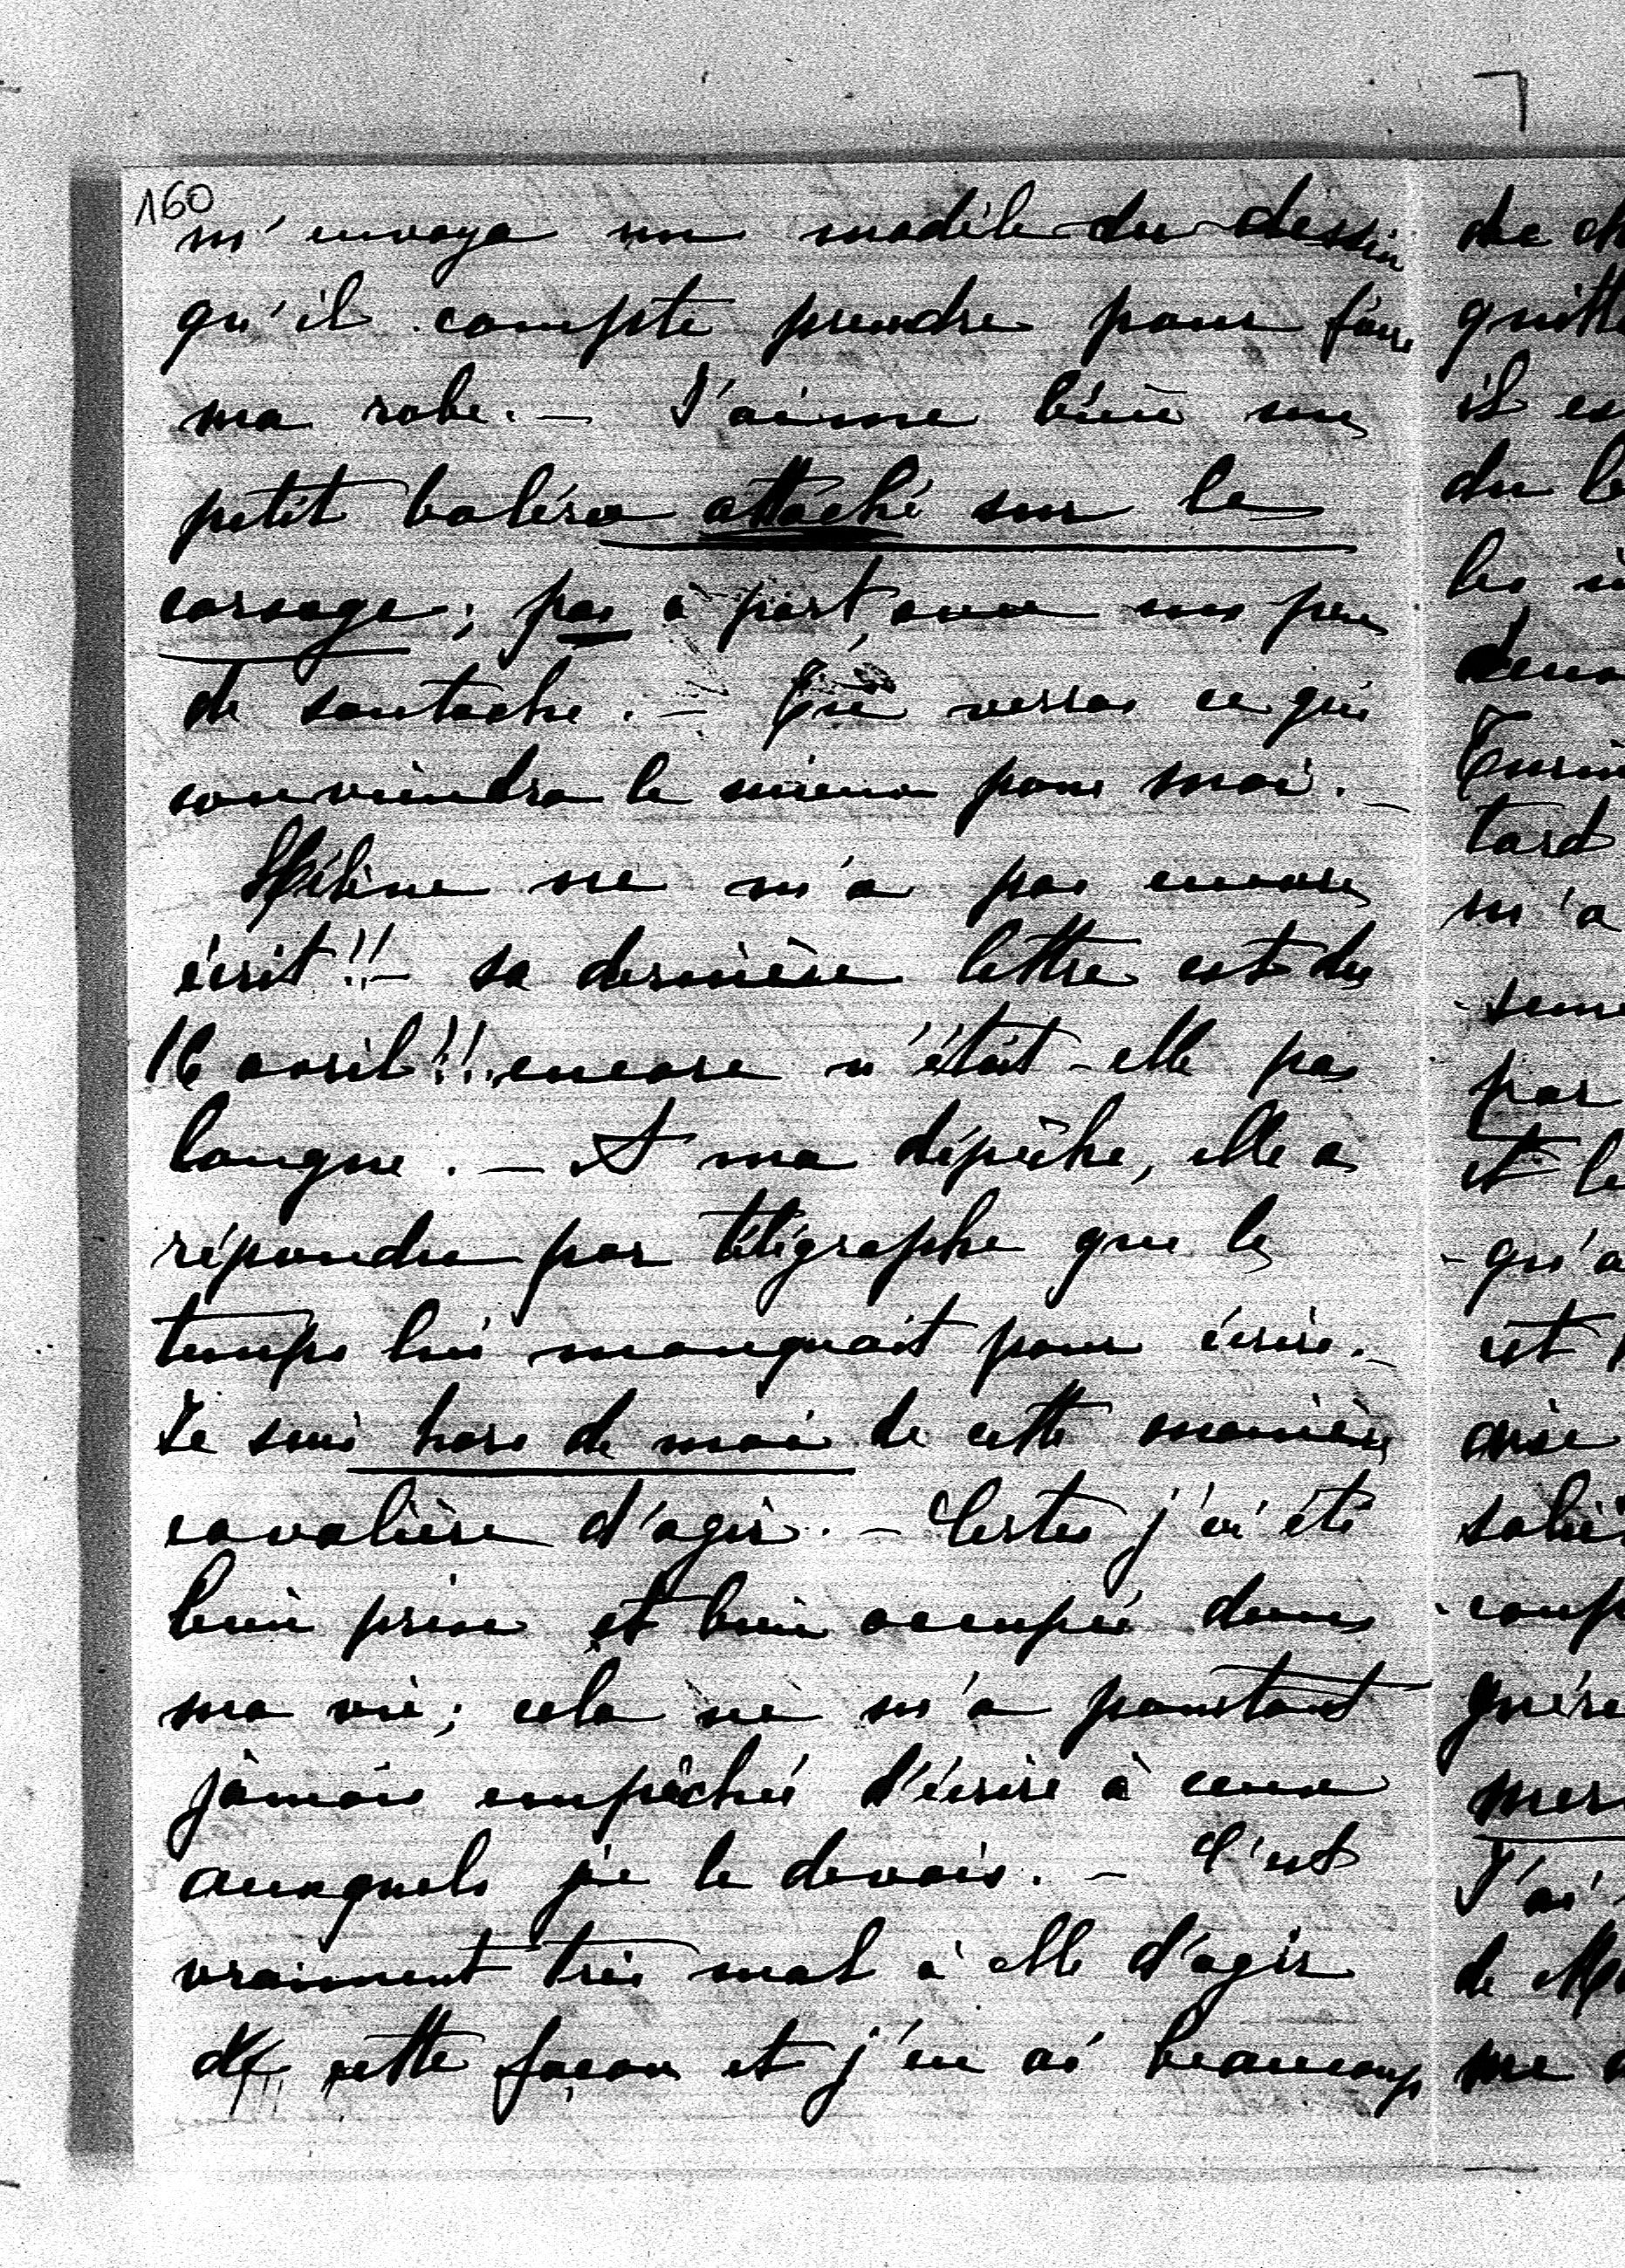 160
m'envoya un modèle du dessin
qu'il compte prendre pour faire
ma robe. — J'aime bien un
petit boléro attaché sur le
corsage; pas à part avec un peu
de soutache. — Tu verras ce qui
conviendra le mieux pour moi. —
Hélène ne m'a pas encore
écrit!! — sa dernière lettre est du
16 avril!!! encore n'était-elle pas
longue. — A ma dépêche, elle a
répondu par télégraphe que le
temps lui manquait pour écrire. —
Je suis hors de moi de cette manière
cavalière d'agir. — Certes j'ai été
bien prise et bien occupée dans
ma vie; cela ne m'a pourtant
jamais empêchée d'écrire à ceux
auxquels je le devais. — C'est
vraiment très mal à elle d'agir
de cette façon et j'en ai beaucoup
de
quitt
il es
du
les
Turin
tard
m'a
par
et le
-qu'a
est
aise
coup
J'ai
de
me